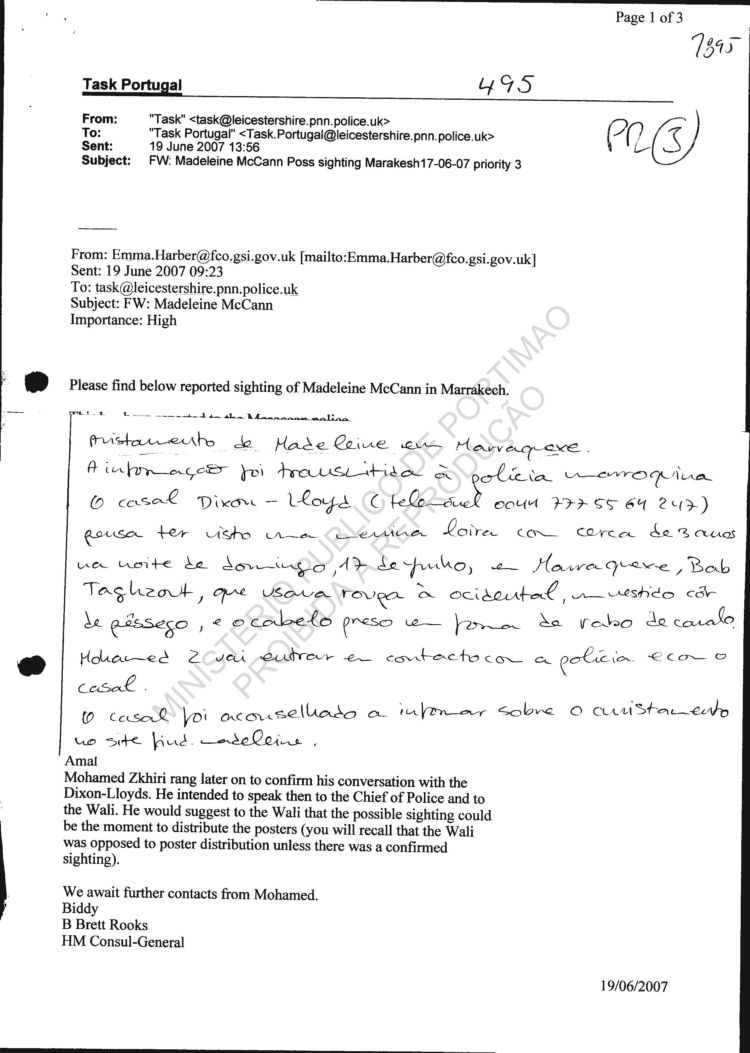 Page 1 of 3
7395
Task Portugal
495
From: "Task" <task@leicestershire.pnn.police.uk>
To: "Task Portugal" <Task.Portugal@leicestershire.pnn.police.uk>
Sent: 19 June 2007 13:56
Subject: FW: Madeleine McCann Poss sighting Marakesh17-06-07 priority 3
PR(3)
From: Emma.Harber@fco.gsi.gov.uk [mailto:Emma.Harber@fco.gsi.gov.uk]
Sent: 19 June 2007 09:23
To: task@leicestershire.pnn.police.uk
Subject: FW: Madeleine McCann
Importance: High
Please find below reported sighting of Madeleine McCann in Marrakech.
to the Moroccan police
Avistamento de Madeleine em Marraquexe.
A informação foi transmitida à polícia marroquina
O casal Dixon - Lloyd (telemóvel 0044 777 55 64 247)
pensa ter visto uma menina loira com cerca de 3 anos
na noite de domingo, 17 de Junho, em Marraquexe, Bab
Taghzout, que usava roupa à ocidental, um vestido côr
de pêssego, e o cabelo preso em forma de rabo de cavalo.
Mohamed Z vai entrar em contacto com a polícia e com o
casal.
O casal foi aconselhado a informar sobre o avistamento
no site find madeleine.
Amal
Mohamed Zkhiri rang later on to confirm his conversation with the
Dixon-Lloyds. He intended to speak then to the Chief of Police and to
the Wali. He would suggest to the Wali that the possible sighting could
be the moment to distribute the posters (you will recall that the Wali
was opposed to poster distribution unless there was a confirmed
sighting).
We await further contacts from Mohamed.
Biddy
B Brett Rooks
HM Consul-General
19/06/2007
MINISTERIO PUBLICO DE PORTIMAO
PROIBIDA A REPRODUÇÃO